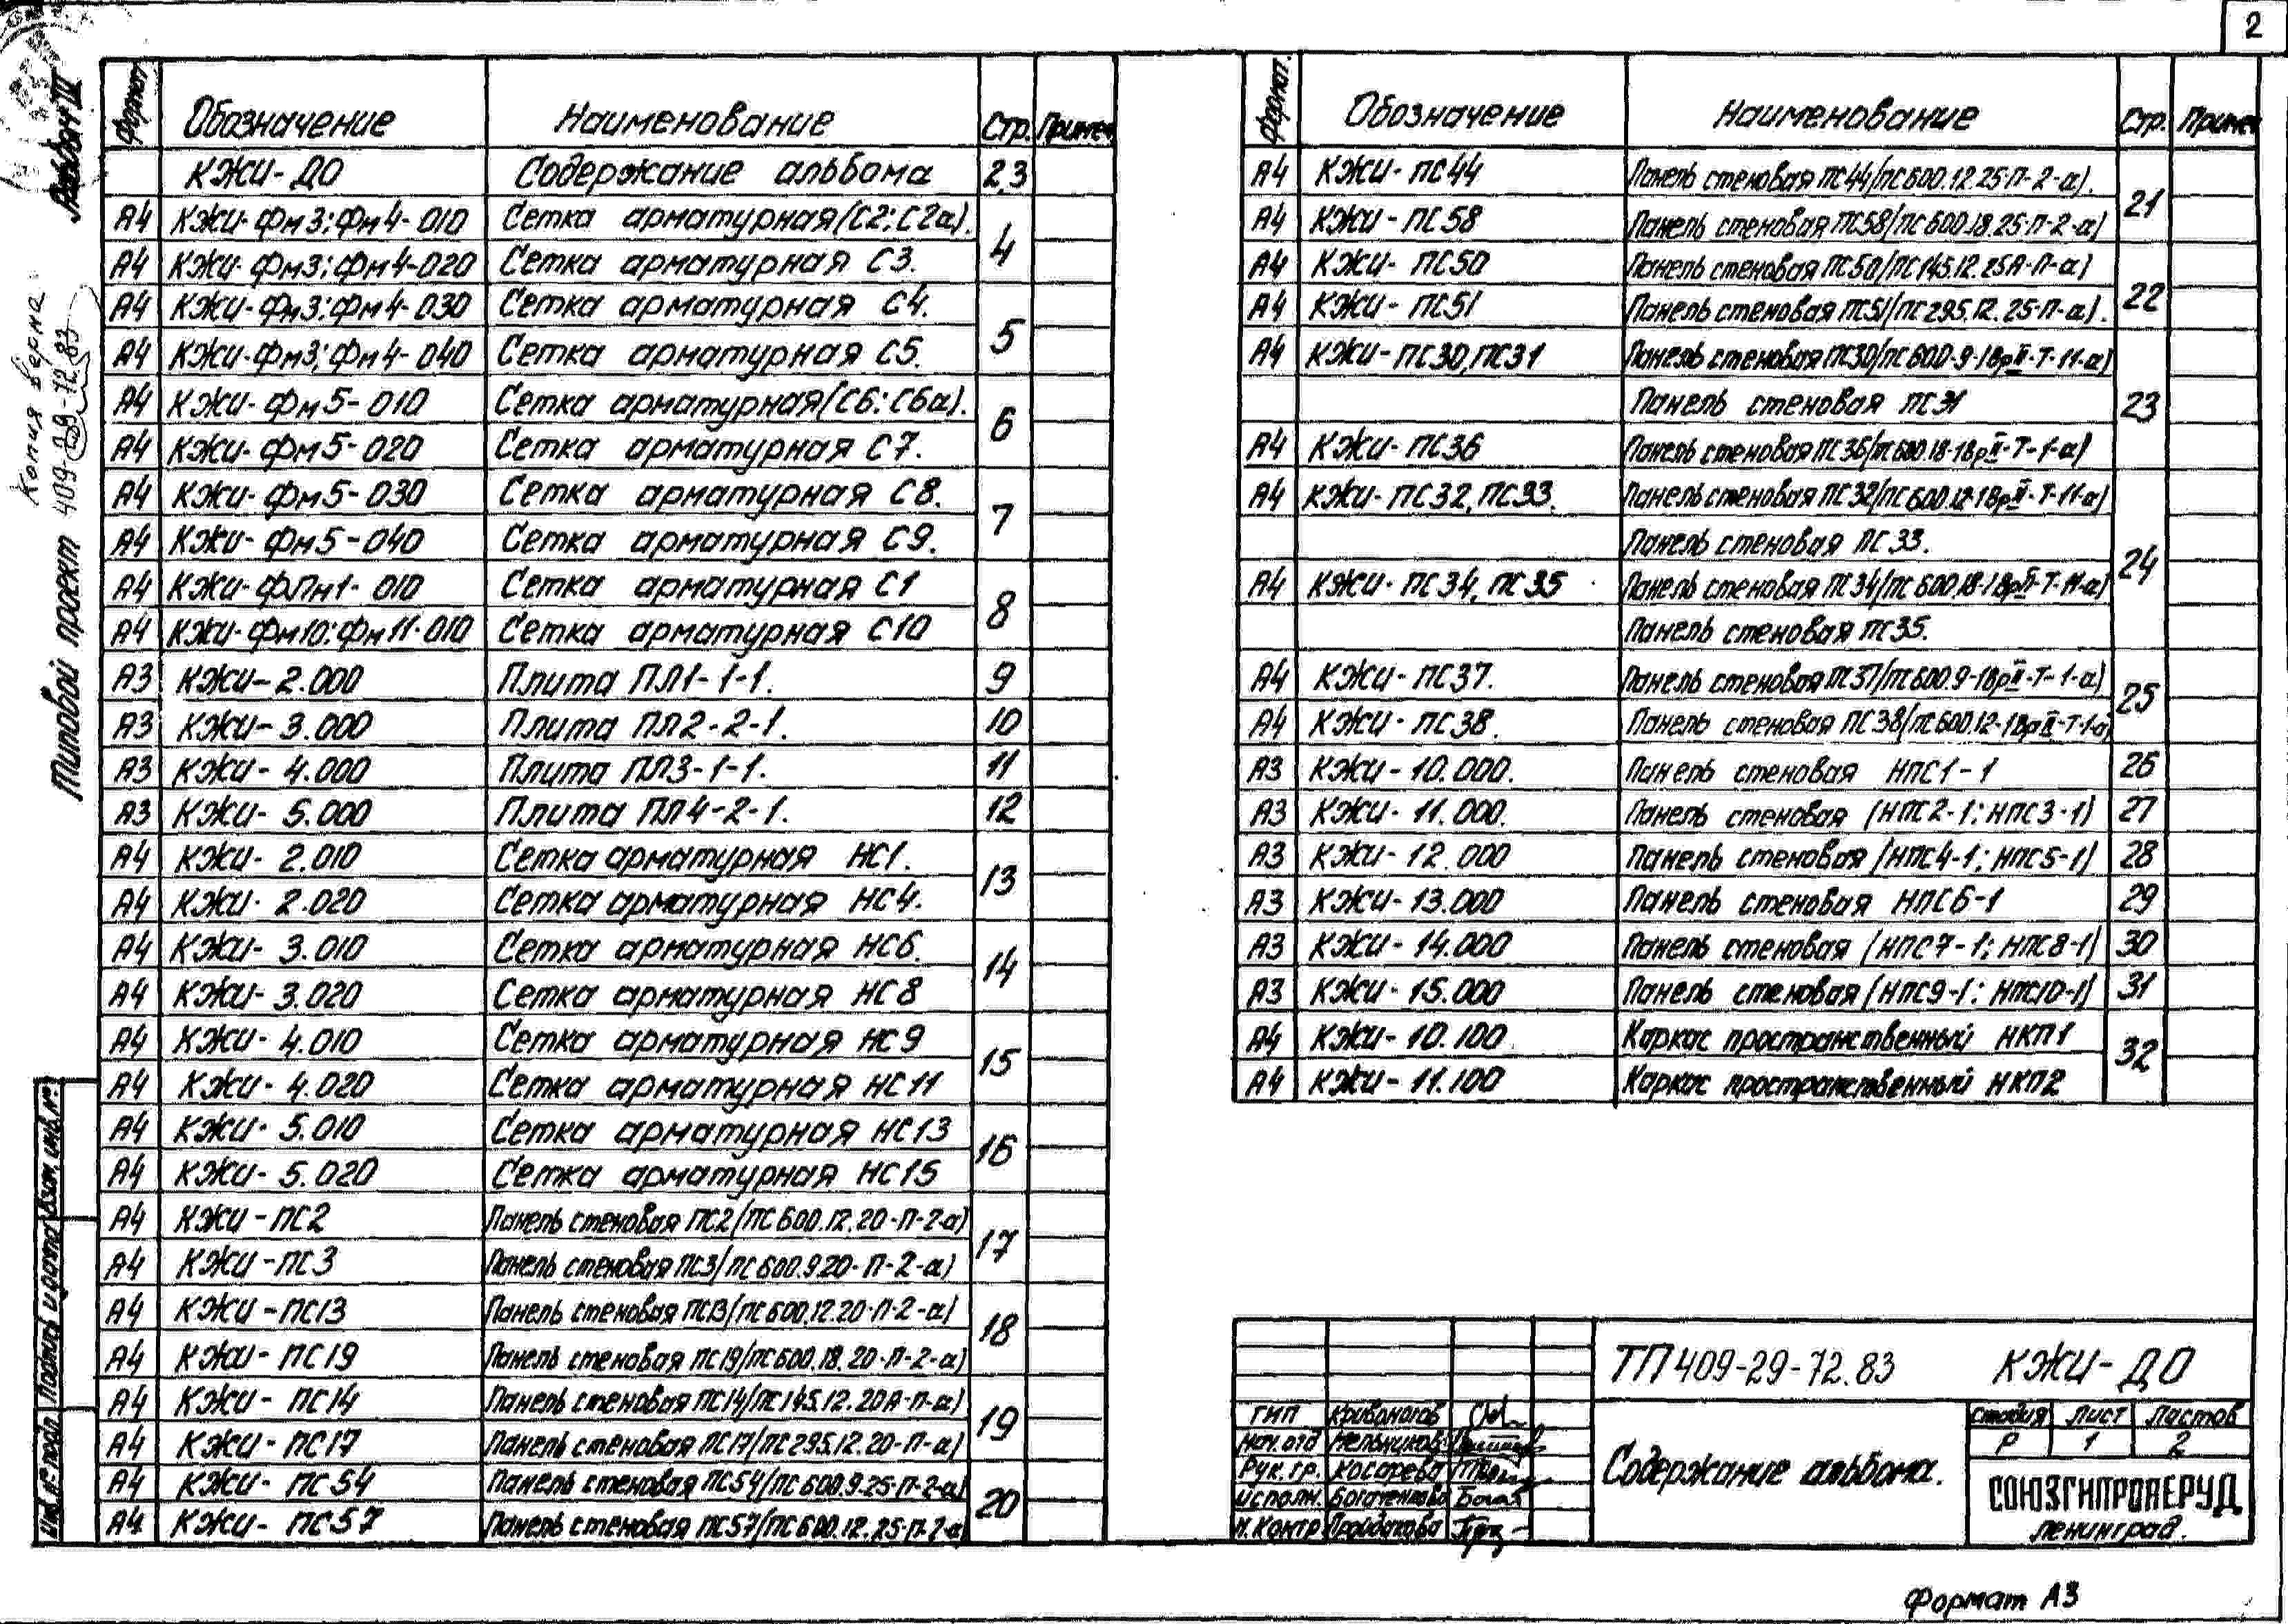 2
Альбом III
Копия верна
Типовой проект 409-29-72.83
Формат Обозначение Наименование Стр. Примеч
КЖИ-ДО Содержание альбома 2,3
А4 КЖИ-Фм3;Фм4-010 Сетка арматурная (С2;С2а). 4
А4 КЖИ-Фм3;Фм4-020 Сетка арматурная С3.
А4 КЖИ-Фм3;Фм4-030 Сетка арматурная С4. 5
А4 КЖИ-Фм3;Фм4-040 Сетка арматурная С5.
А4 КЖИ-Фм5-010 Сетка арматурная (С6;С6а). 6
А4 КЖИ-Фм5-020 Сетка арматурная С7.
А4 КЖИ-Фм5-030 Сетка арматурная С8. 7
А4 КЖИ-Фм5-040 Сетка арматурная С9.
А4 КЖИ-ФПм1-010 Сетка арматурная С1 8
А4 КЖИ-Фм10;Фм11-010 Сетка арматурная С10
А3 КЖИ-2.000 Плита ПЛ1-1-1. 9
А3 КЖИ-3.000 Плита ПЛ2-2-1. 10
А3 КЖИ-4.000 Плита ПЛ3-1-1. 11
А3 КЖИ-5.000 Плита ПЛ4-2-1. 12
А4 КЖИ-2.010 Сетка арматурная НС1. 13
А4 КЖИ-2.020 Сетка арматурная НС4.
А4 КЖИ-3.010 Сетка арматурная НС6. 14
А4 КЖИ-3.020 Сетка арматурная НС8
А4 КЖИ-4.010 Сетка арматурная НС9 15
А4 КЖИ-4.020 Сетка арматурная НС11
А4 КЖИ-5.010 Сетка арматурная НС13 16
А4 КЖИ-5.020 Сетка арматурная НС15
А4 КЖИ-ПС2 Панель стеновая ПС2/ПС600.12.20-П-2-а) 17
А4 КЖИ-ПС3 Панель стеновая ПС3/ПС600.9.20-П-2-а)
А4 КЖИ-ПС13 Панель стеновая ПС13/ПС600.12.20-П-2-а) 18
А4 КЖИ-ПС19 Панель стеновая ПС19/ПС600.18.20-П-2-а)
А4 КЖИ-ПС14 Панель стеновая ПС14/ПС145.12.20А-П-а) 19
А4 КЖИ-ПС17 Панель стеновая ПС17/ПС295.12.20-П-а)
А4 КЖИ-ПС54 Панель стеновая ПС54/ПС600.9.25-П-2-а) 20
А4 КЖИ-ПС57 Панель стеновая ПС57/ПС600.12.25-П-2-а)
Формат. Обозначение Наименование Стр. Примеч
А4 КЖИ-ПС44 Панель стеновая ПС44/ПС600.12.25-П-2-а). 21
А4 КЖИ-ПС58 Панель стеновая ПС58/ПС600.18.25-П-2-а)
А4 КЖИ-ПС50 Панель стеновая ПС50/ПС145.12.25А-П-а) 22
А4 КЖИ-ПС51 Панель стеновая ПС51/ПС295.12.25-П-а).
А4 КЖИ-ПС30,ПС31 Панель стеновая ПС30/ПС600-9-1ВрII-Т-11-а) 23
Панель стеновая ПС31
А4 КЖИ-ПС36 Панель стеновая ПС36/ПС600.18-1ВрII-Т-1-а)
А4 КЖИ-ПС32,ПС33. Панель стеновая ПС32/ПС600.12-1ВрII-Т-11-а) 24
Панель стеновая ПС33.
А4 КЖИ-ПС34,ПС35 Панель стеновая ПС34/ПС600.18-1ВрII-Т-11-а)
Панель стеновая ПС35.
А4 КЖИ-ПС37. Панель стеновая ПС37/ПС600.9-1ВрII-Т-1-а) 25
А4 КЖИ-ПС38. Панель стеновая ПС38/ПС600.12-1ВрII-Т-1-а)
А3 КЖИ-10.000. Панель стеновая НПС1-1 26
А3 КЖИ-11.000. Панель стеновая (НПС2-1;НПС3-1) 27
А3 КЖИ-12.000 Панель стеновая (НПС4-1;НПС5-1) 28
А3 КЖИ-13.000 Панель стеновая НПС6-1 29
А3 КЖИ-14.000 Панель стеновая (НПС7-1;НПС8-1) 30
А3 КЖИ-15.000 Панель стеновая (НПС9-1;НПС10-1) 31
А4 КЖИ-10.100 Каркас пространственный НКП1 32
А4 КЖИ-11.100 Каркас пространственный НКП2
Взам. инв.№
Подпись и дата
Инв.№ подл.
ТП 409-29-72.83 КЖИ-ДО
ГИП Кривоногов
Нач.отд Мельников
Рук.гр. Косарева
Исполн. Богатенкова
Н.контр
Содержание альбома.
Стадия Лист Листов
Р 1 2
СОЮЗГИПРОНЕРУД
Ленинград.
Формат А3